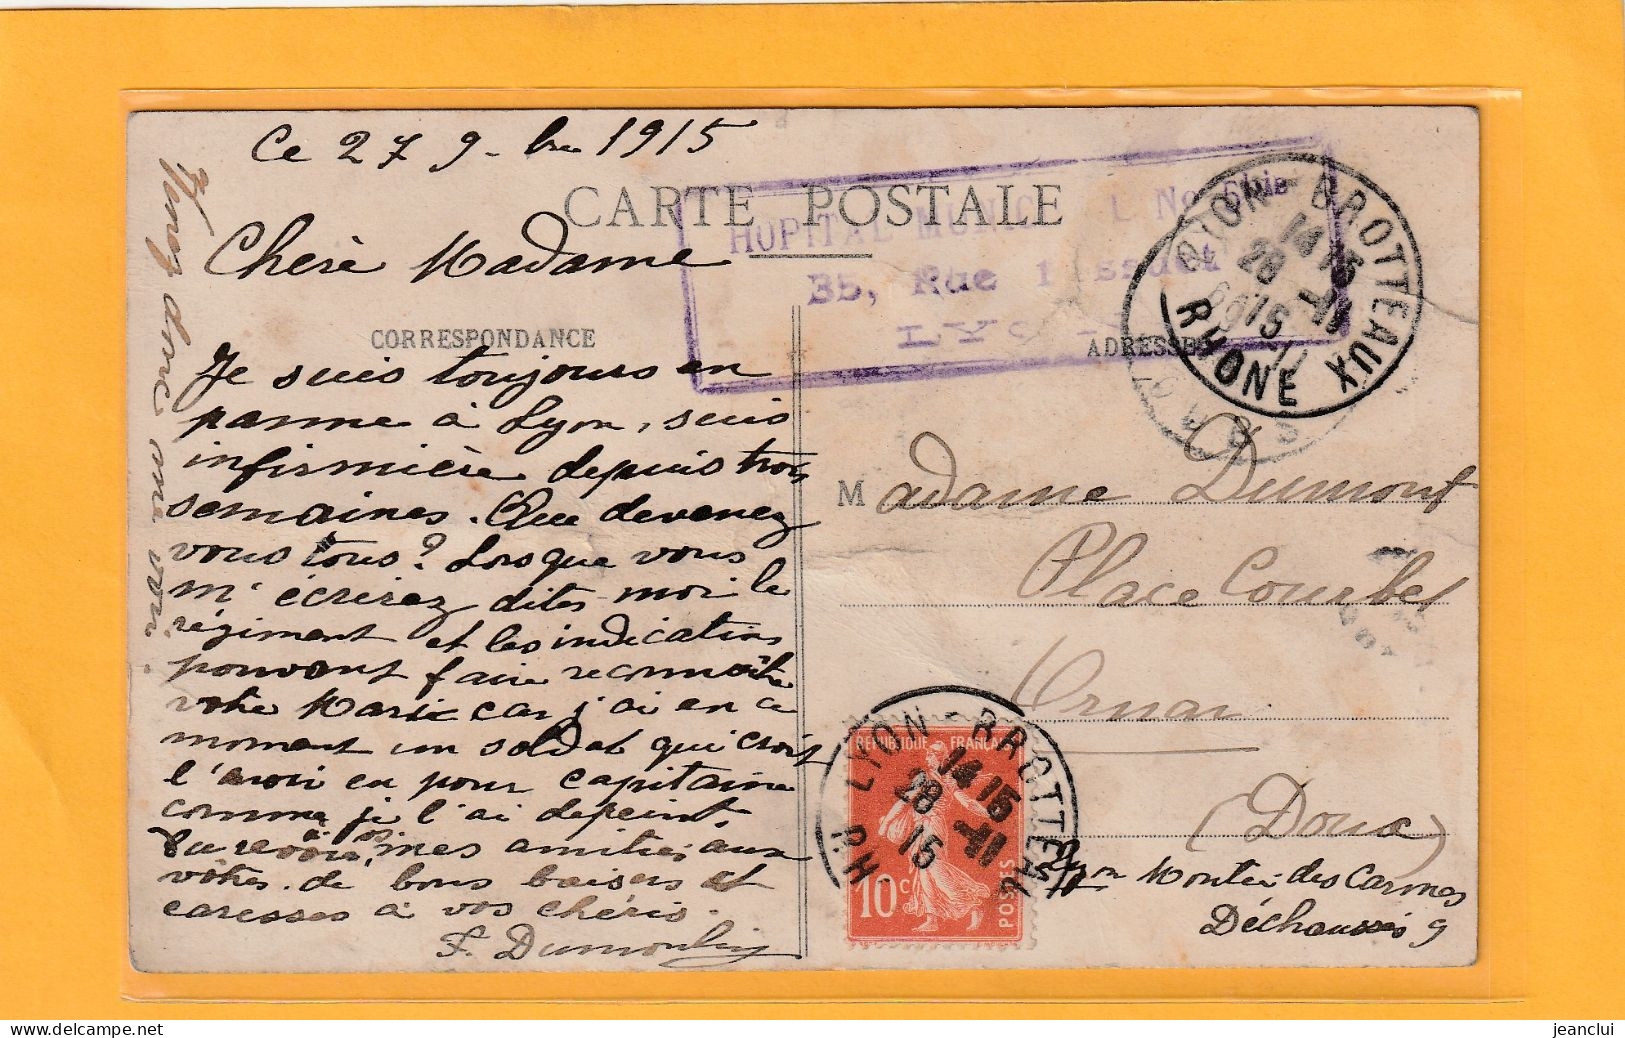 Ce 27 9-bre 1915
CARTE POSTALE
HOPITAL MUNICIPAL No 6bis
35, Rue
LYON
Chère Madame
CORRESPONDANCE
ADRESSE
Je suis toujours en
panne à Lyon, suis
infirmière depuis trois
semaines. Que devenez
vous tous? Lorsque vous
m'écrirez dites-moi le
régiment et les indications
pouvant faire reconnaître
votre Mari car j'ai en ce
moment un soldat qui croit
l'avoir eu pour capitaine
comme je l'ai dépeint.
Au revoir, mes amitiés aux
vôtres. de bons baisers et
caresses à vos chéris.
F. Dumoulin
Venez donc me voir
Madame Dumont
Place Courbet
Ornans
(Doubs)
Lyon Montée des Carmes
Déchaussés 9
LYON - BROTTEAUX
14 15
28 -11
15
RHONE
REPUBLIQUE FRANÇAISE
10c
POSTES
LYON - BROTTEAUX
14 15
28 -11
15
RHÔ
jeanclui